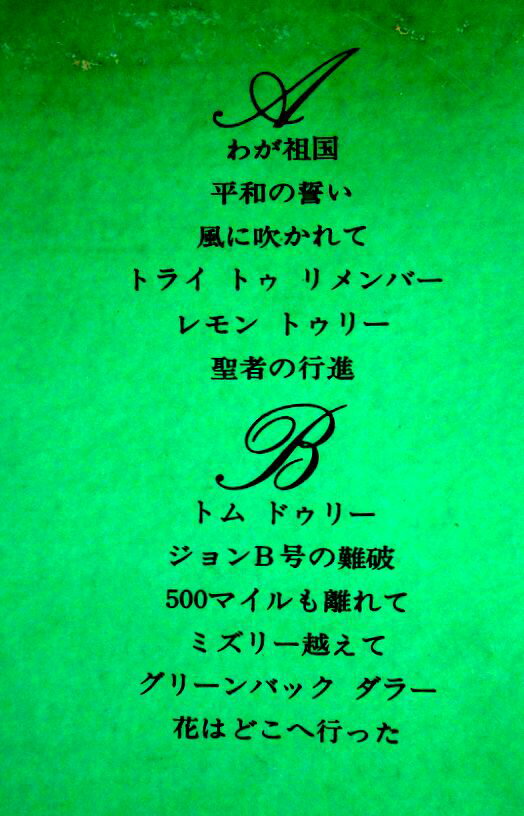 A
わが祖国
平和の誓い
風に吹かれて
トライ トゥ リメンバー
レモン トゥリー
聖者の行進
B
トム ドゥリー
ジョンB号の難破
500マイルも離れて
ミズリー越えて
グリーンバック ダラー
花はどこへ行った